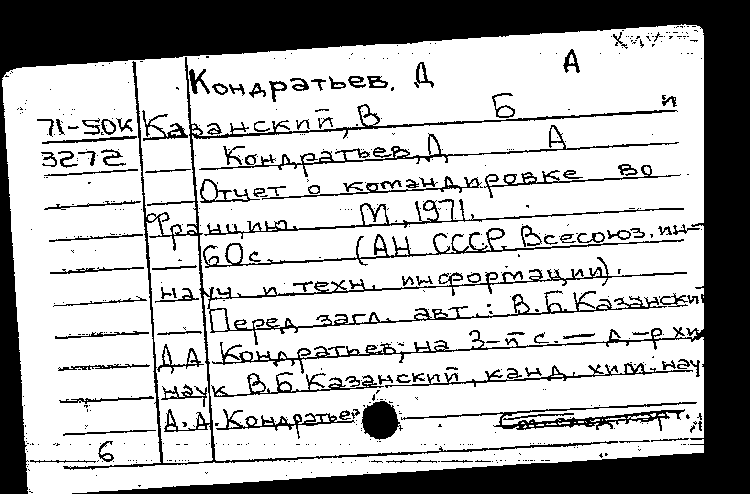 Кондратьев, Д А
71-50К Казанский, В Б и
3272 Кондратьев, Д А
Отчет о командировке во
Францию. М., 1971.
60с. (АН СССР. Всесоюз. ин-
науч. и техн. информации).
Перед загл. авт.: В.Б. Казанский
Д.А. Кондратьев; на 3-й с. — д-р хим
наук В.Б. Казанский, канд. хим. нау
Д.А. Кондратьев
См. след. карт.
6